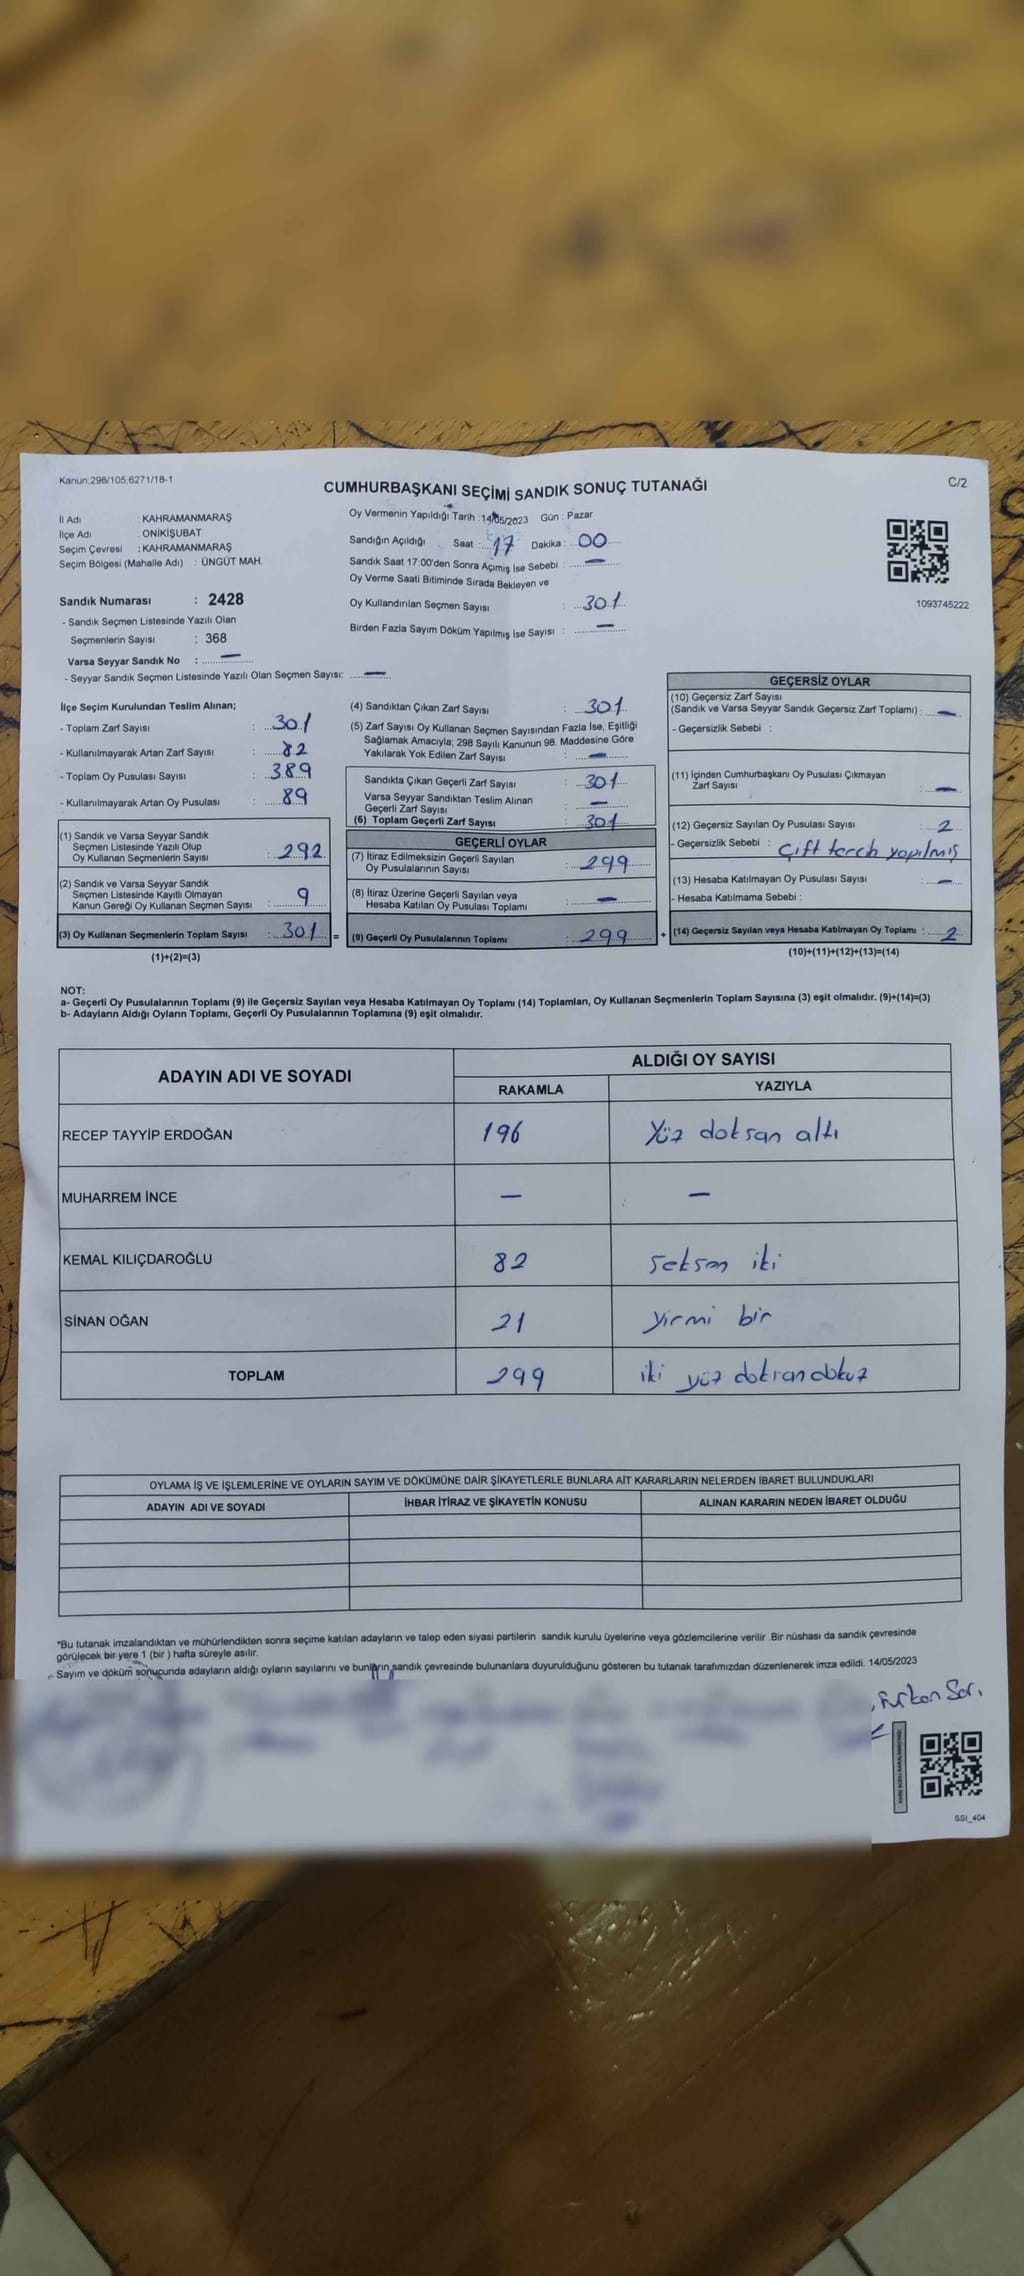 Kanun:298/105,6271/18-1
C/2
CUMHURBAŞKANI SEÇİMİ SANDIK SONUÇ TUTANAĞI
İl Adı : KAHRAMANMARAŞ
İlçe Adı : ONİKİŞUBAT
Seçim Çevresi : KAHRAMANMARAŞ
Seçim Bölgesi (Mahalle Adı) : ÜNGÜT MAH.
Sandık Numarası : 2428
- Sandık Seçmen Listesinde Yazılı Olan
Seçmenlerin Sayısı : 368
Varsa Seyyar Sandık No : —
- Seyyar Sandık Seçmen Listesinde Yazılı Olan Seçmen Sayısı: —
Oy Vermenin Yapıldığı Tarih :14/05/2023 Gün : Pazar
Sandığın Açıldığı Saat : 17 Dakika : 00
Sandık Saat 17:00'den Sonra Açımış İse Sebebi : —
Oy Verme Saati Bitiminde Sırada Bekleyen ve
Oy Kullandırılan Seçmen Sayısı : 301
Birden Fazla Sayım Döküm Yapılmış İse Sayısı : —
1093745222
İlçe Seçim Kurulundan Teslim Alınan;
- Toplam Zarf Sayısı : 301
- Kullanılmayarak Artan Zarf Sayısı : 82
- Toplam Oy Pusulası Sayısı : 389
- Kullanılmayarak Artan Oy Pusulası : 89
(1) Sandık ve Varsa Seyyar Sandık
Seçmen Listesinde Yazılı Olup
Oy Kullanan Seçmenlerin Sayısı : 292
(2) Sandık ve Varsa Seyyar Sandık
Seçmen Listesinde Kayıtlı Olmayan
Kanun Gereği Oy Kullanan Seçmen Sayısı : 9
(3) Oy Kullanan Seçmenlerin Toplam Sayısı : 301 =
(1)+(2)=(3)
(4) Sandıktan Çıkan Zarf Sayısı : 301
(5) Zarf Sayısı Oy Kullanan Seçmen Sayısından Fazla İse, Eşitliği
Sağlamak Amacıyla; 298 Sayılı Kanunun 98. Maddesine Göre
Yakılarak Yok Edilen Zarf Sayısı : —
Sandıkta Çıkan Geçerli Zarf Sayısı : 301
Varsa Seyyar Sandıktan Teslim Alınan
Geçerli Zarf Sayısı : —
(6) Toplam Geçerli Zarf Sayısı : 301
GEÇERLİ OYLAR
(7) İtiraz Edilmeksizin Geçerli Sayılan
Oy Pusulalarının Sayısı : 299
(8) İtiraz Üzerine Geçerli Sayılan veya
Hesaba Katılan Oy Pusulası Toplamı : —
(9) Geçerli Oy Pusulalarının Toplamı : 299 +
GEÇERSİZ OYLAR
(10) Geçersiz Zarf Sayısı
(Sandık ve Varsa Seyyar Sandık Geçersiz Zarf Toplamı) : —
- Geçersizlik Sebebi :
(11) İçinden Cumhurbaşkanı Oy Pusulası Çıkmayan
Zarf Sayısı : —
(12) Geçersiz Sayılan Oy Pusulası Sayısı : 2
- Geçersizlik Sebebi : çift tercih yapılmış
(13) Hesaba Katılmayan Oy Pusulası Sayısı : —
- Hesaba Katılmama Sebebi :
(14) Geçersiz Sayılan veya Hesaba Katılmayan Oy Toplamı : 2
(10)+(11)+(12)+(13)=(14)
NOT:
a- Geçerli Oy Pusulalarının Toplamı (9) ile Geçersiz Sayılan veya Hesaba Katılmayan Oy Toplamı (14) Toplamları, Oy Kullanan Seçmenlerin Toplam Sayısına (3) eşit olmalıdır. (9)+(14)=(3)
b- Adayların Aldığı Oyların Toplamı, Geçerli Oy Pusulalarının Toplamına (9) eşit olmalıdır.
ADAYIN ADI VE SOYADI
ALDIĞI OY SAYISI
RAKAMLA YAZIYLA
RECEP TAYYİP ERDOĞAN 196 Yüz doksan altı
MUHARREM İNCE — —
KEMAL KILIÇDAROĞLU 82 seksen iki
SİNAN OĞAN 21 yirmi bir
TOPLAM 299 iki yüz doksandokuz
OYLAMA İŞ VE İŞLEMLERİNE VE OYLARIN SAYIM VE DÖKÜMÜNE DAİR ŞİKAYETLERLE BUNLARA AİT KARARLARIN NELERDEN İBARET BULUNDUKLARI
ADAYIN ADI VE SOYADI İHBAR İTİRAZ VE ŞİKAYETİN KONUSU ALINAN KARARIN NEDEN İBARET OLDUĞU
*Bu tutanak imzalandıktan ve mühürlendikten sonra seçime katılan adayların ve talep eden siyasi partilerin sandık kurulu üyelerine veya gözlemcilerine verilir .Bir nüshası da sandık çevresinde
görülecek bir yere 1 (bir ) hafta süreyle asılır.
Sayım ve döküm sonucunda adayların aldığı oyların sayılarını ve bunların sandık çevresinde bulunanlara duyurulduğunu gösteren bu tutanak tarafımızdan düzenlenerek imza edildi. 14/05/2023
Furkan
SSI_404